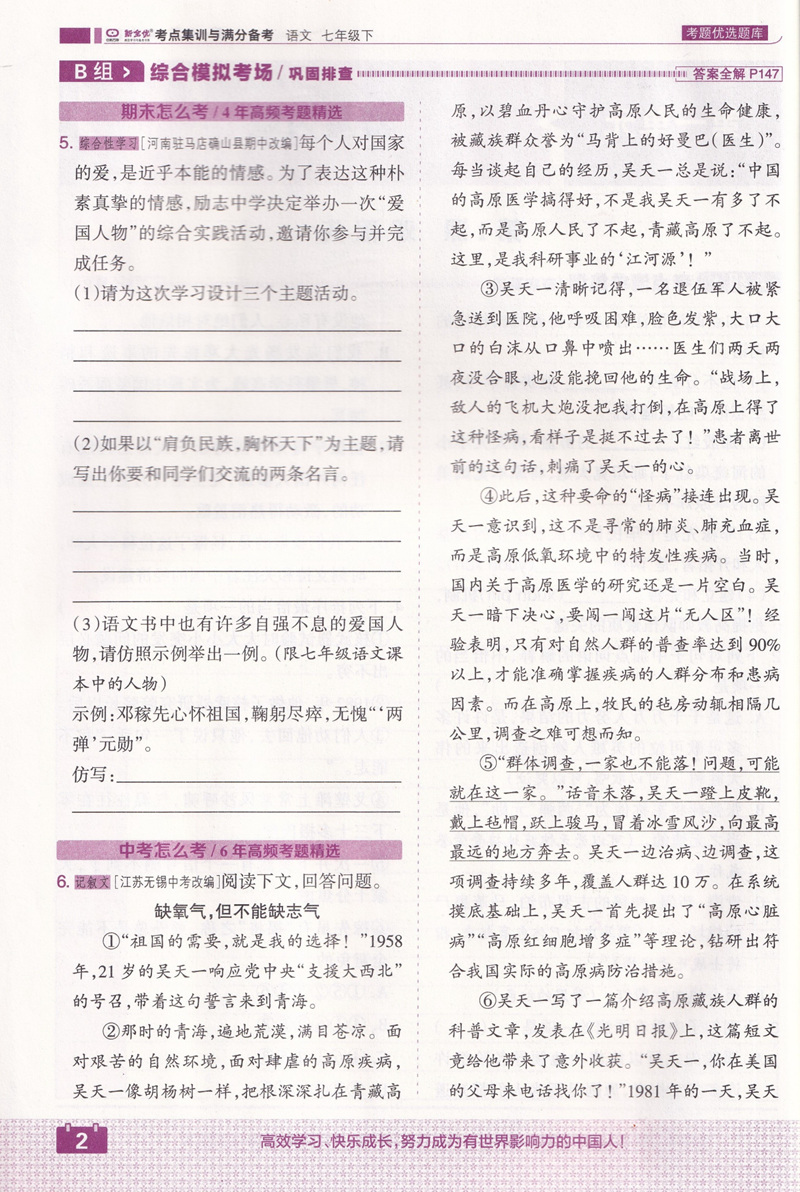 新金优 考点集训与满分备考 语文 七年级下
考题优选题库
B组 综合模拟考场/巩固排查
答案全解 P147
期末怎么考/4年高频考题精选
5. 综合性学习[河南驻马店确山县期中改编]每个人对国家
的爱,是近乎本能的情感。为了表达这种朴
素真挚的情感,励志中学决定举办一次“爱
国人物”的综合实践活动,邀请你参与并完
成任务。
(1)请为这次学习设计三个主题活动。
(2)如果以“肩负民族,胸怀天下”为主题,请
写出你要和同学们交流的两条名言。
(3)语文书中也有许多自强不息的爱国人
物,请仿照示例举出一例。(限七年级语文课
本中的人物)
示例:邓稼先心怀祖国,鞠躬尽瘁,无愧“‘两
弹’元勋”。
仿写:
中考怎么考/6年高频考题精选
6. 记叙文[江苏无锡中考改编]阅读下文,回答问题。
缺氧气,但不能缺志气
①“祖国的需要,就是我的选择!”1958
年,21岁的吴天一响应党中央“支援大西北”
的号召,带着这句誓言来到青海。
②那时的青海,遍地荒漠,满目苍凉。面
对艰苦的自然环境,面对肆虐的高原疾病,
吴天一像胡杨树一样,把根深深扎在青藏高
原,以碧血丹心守护高原人民的生命健康,
被藏族群众誉为“马背上的好曼巴(医生)”。
每当谈起自己的经历,吴天一总是说:“中国
的高原医学搞得好,不是我吴天一有多了不
起,而是高原人民了不起,青藏高原了不起。
这里,是我科研事业的‘江河源’!”
③吴天一清晰记得,一名退伍军人被紧
急送到医院,他呼吸困难,脸色发紫,大口大
口的白沫从口鼻中喷出……医生们两天两
夜没合眼,也没能挽回他的生命。“战场上,
敌人的飞机大炮没把我打倒,在高原上得了
这种怪病,看样子是挺不过去了!”患者离世
前的这句话,刺痛了吴天一的心。
④此后,这种要命的“怪病”接连出现。吴
天一意识到,这不是寻常的肺炎、肺充血症,
而是高原低氧环境中的特发性疾病。当时,
国内关于高原医学的研究还是一片空白。吴
天一暗下决心,要闯一闯这片“无人区”!经
验表明,只有对自然人群的普查率达到90%
以上,才能准确掌握疾病的人群分布和患病
因素。而在高原上,牧民的毡房动辄相隔几
公里,调查之难可想而知。
⑤“群体调查,一家也不能落!问题,可能
就在这一家。”话音未落,吴天一蹬上皮靴,
戴上毡帽,跃上骏马,冒着冰雪风沙,向最高
最远的地方奔去。吴天一边治病、边调查,这
项调查持续多年,覆盖人群达10万。在系统
摸底基础上,吴天一首先提出了“高原心脏
病”“高原红细胞增多症”等理论,钻研出符
合我国实际的高原病防治措施。
⑥吴天一写了一篇介绍高原藏族人群的
科普文章,发表在《光明日报》上,这篇短文
竟给他带来了意外收获。“吴天一,你在美国
的父母来电话找你了!”1981年的一天,吴天
2
高效学习、快乐成长,努力成为有世界影响力的中国人!